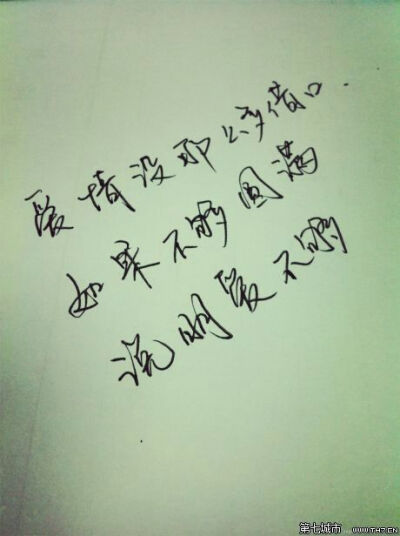 爱情没那么多借口.
如果不够圆满
说明爱不够
第七城市 WWW.TH7.CN